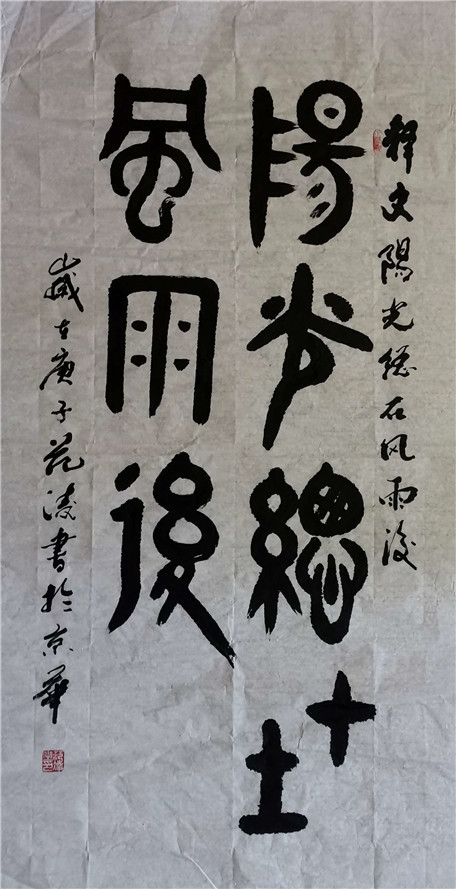 释文陽光總在风雨後
陽光總在
風雨後
歲在庚子范淩書於京華